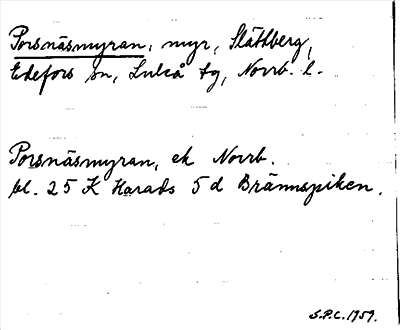 Porsnäsmyran, myr, Slättberg,
Edefors sn, Luleå tg, Norrb. l.
Porsnäsmyran, ek Norrb.
bl. 25 K Harads 5 d Brännspiken.
S.P.C. 1959.